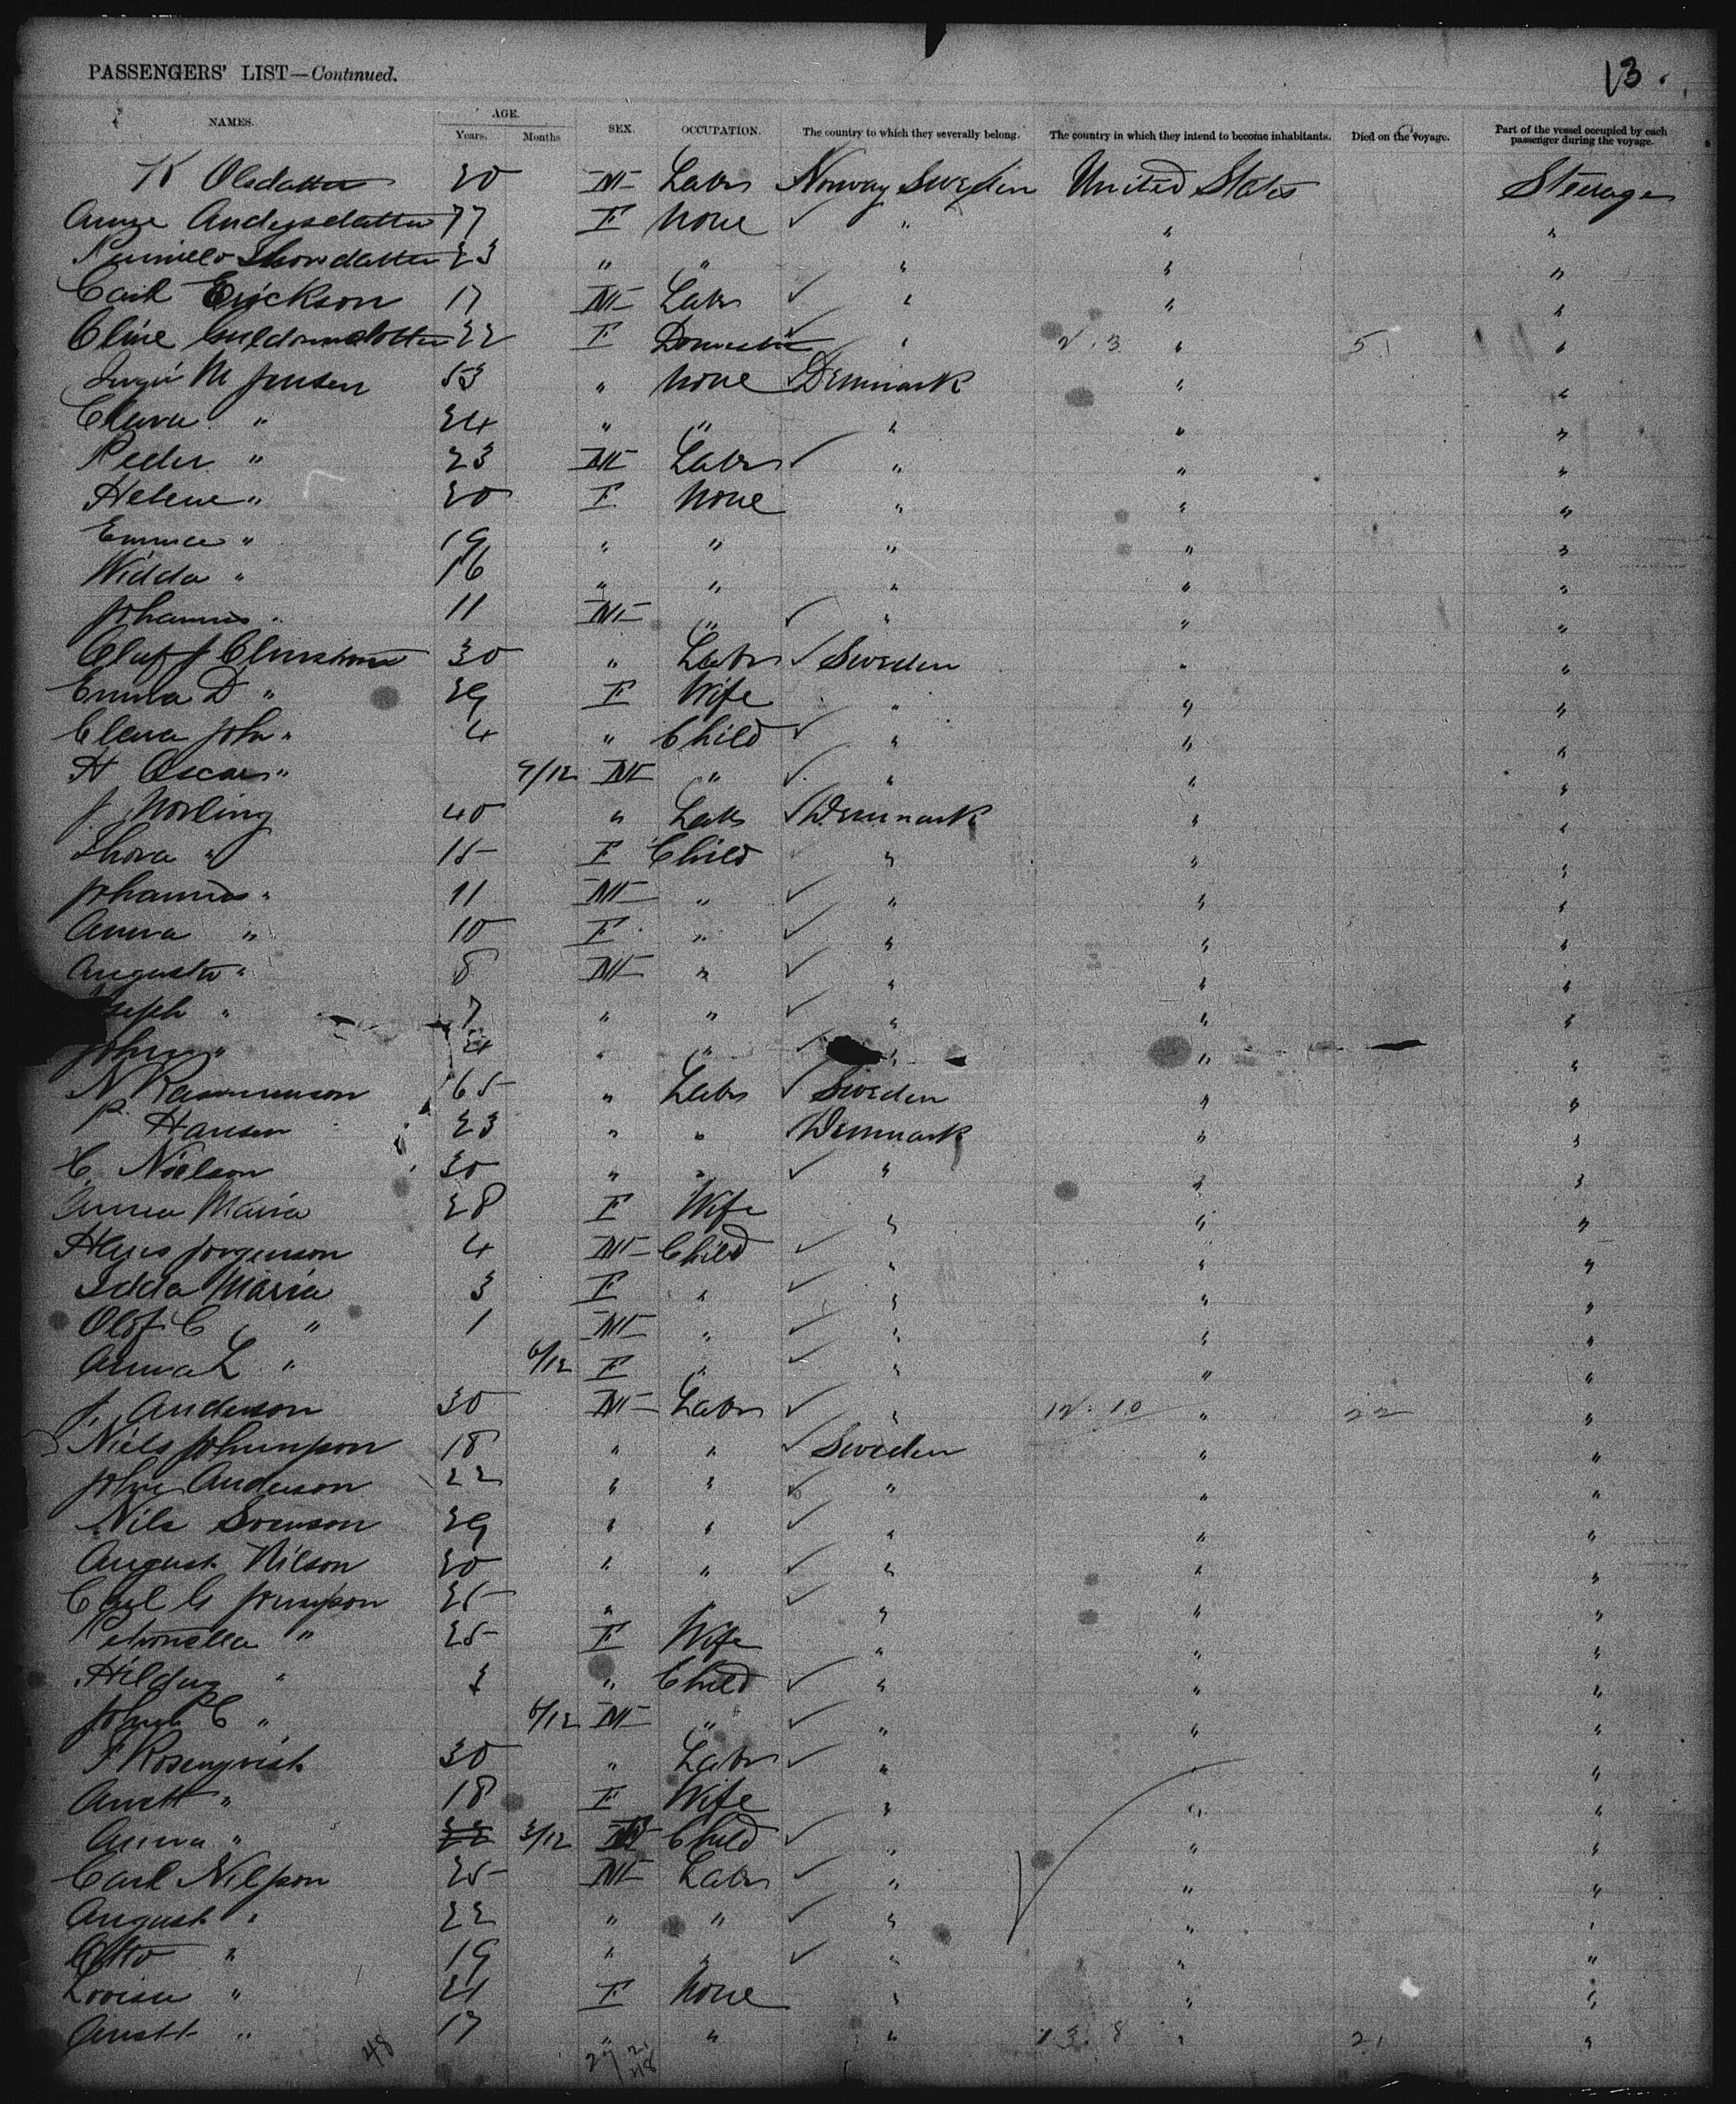 PASSENGERS' LIST—Continued. 13.
NAMES. AGE. Years. Months SEX. OCCUPATION. The country to which they severally belong. The country in which they intend to become inhabitants. Died on the voyage. Part of the vessel occupied by each passenger during the voyage.
K Olsdatter 20 M Labr Norway Sweden United States Steerage
Andersdatter 77 F None ✓ " " "
Thorsdatter 23 " " " " "
Carl Erickson 17 M Labr ✓ " " "
Oline 22 F Domestic ✓ " 2.3 " 5 "
M Jensen 53 " None ✓ Denmark " "
Clara " 24 " " " " "
Peder " 23 M Labr ✓ " " "
Helene " 20 F None " " "
Emma " 19 " " " " "
Widda " 16 " " " " "
Johannes " 11 M " ✓ " " "
Olaf J 30 " Labr ✓ Sweden " "
Emma D " 29 F Wife " " "
Elena Joh " 4 " Child ✓ " " "
H Oscar " 9/12 M " ✓ " " "
J Norling 40 " Labr ✓ Denmark " "
Thora " 15 F Child ✓ " " "
Johannes " 11 M " ✓ " " "
Anna " 10 F " ✓ " " "
August " 8 M " ✓ " " "
seph " 7 " " ✓ " " "
John " " " ✓ " " "
N Rasmusson 65 " Labr ✓ Sweden " "
P. Hansen 23 " " Denmark " "
C. Nielson 30 " " ✓ " " "
Anna Maria 28 F Wife " " "
Hans Jorgenson 4 M Child ✓ " " "
Idda Maria 3 F " ✓ " " "
Olof C " 1 M " ✓ " " "
Anna L " 6/12 F " ✓ " " "
J. Anderson 30 M Labr ✓ " 12.10 " 22 "
Niels Johnson 18 " " ✓ Sweden " "
John Anderson 22 " " ✓ " " "
Nils Svenson 29 " " ✓ " " "
August Nilson 20 " " ✓ " " "
Carl G 25 " " ✓ " " "
Petronella " 25 F Wife " " "
" " Child ✓ " " "
John C " 6/12 M " ✓ " " "
F Rosenqvist 30 " Labr ✓ " " "
Anett " 18 F Wife " " "
Anna " 3/12 Child ✓ " " "
Carl Nilsson 25 M Labr ✓ " " "
August " 22 " " ✓ " " "
Otto " 19 " " ✓ " " "
Lovisa " 21 F None " " "
Anett " 17 " " " 13.8 " 21 "
48 27 21 48